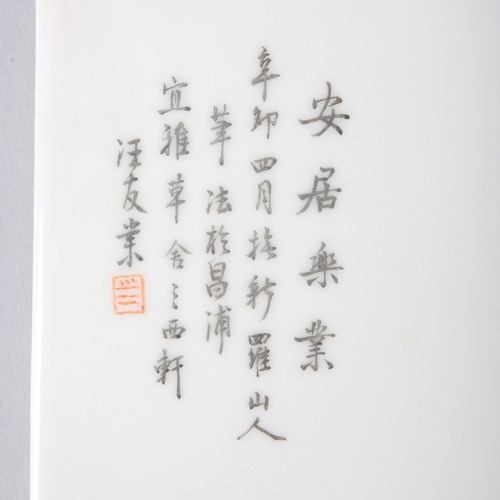 安居樂業
辛卯四月摹新羅山人
筆法於昌浦
宜雅草舍之西軒
汪友棠